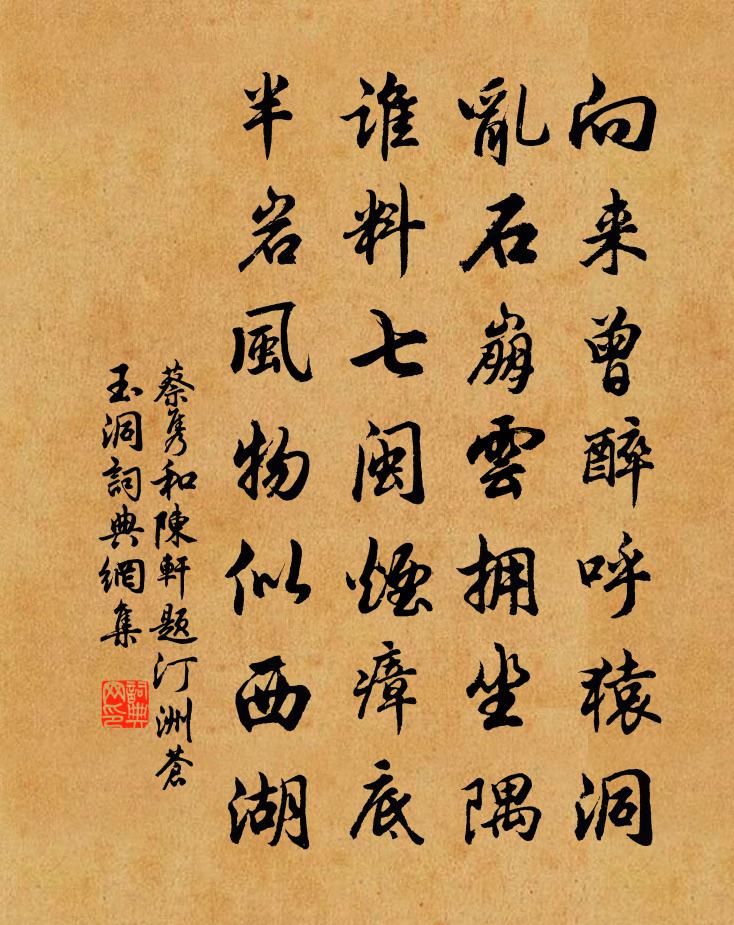 向来曾醉呼猿洞
亂石崩雲拥坐隅
谁料七闽煙瘴底
半岩風物似西湖
蔡隽和陳軒題汀洲蒼
玉洞詞典網集
詞典
网印